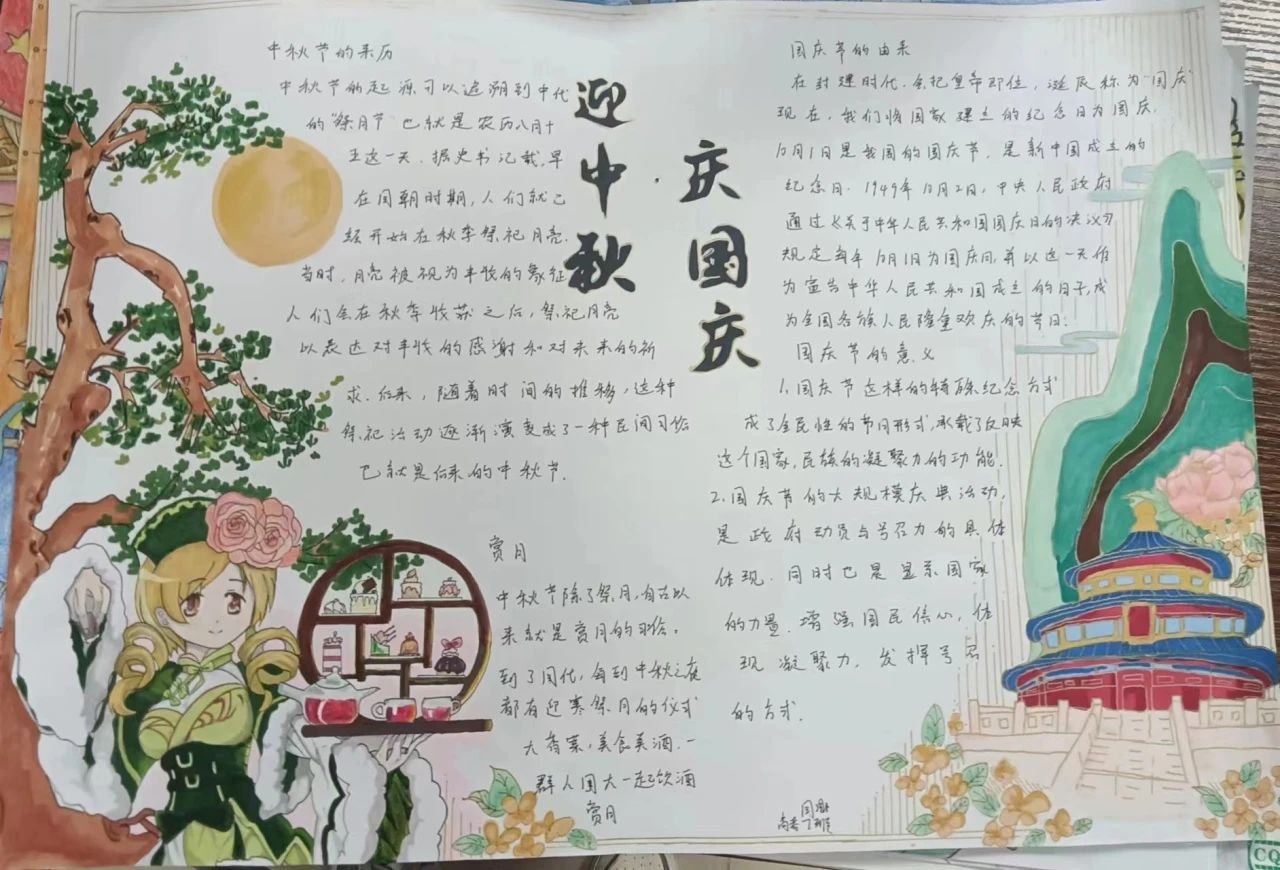 中秋节的来历
中秋节的起源可以追溯到中代
的"祭月节"也就是农历八月十
五这一天.据史书记载,早
在周朝时期,人们就已
经开始在秋季祭祀月亮.
当时,月亮被视为丰收的象征
人们会在秋季收获之后,祭祀月亮
以表达对丰收的感谢和对未来的祈
求.后来,随着时间的推移,这种
祭祀活动逐渐演变成了一种民间习俗
也就是后来的中秋节.
赏月
中秋节除了祭月,自古以
来就是赏月的习俗。
到了周代,每到中秋之夜
都有迎寒祭月的仪式
大香案,美食美酒.一
群人围大一起饮酒
赏月
迎中秋·
庆国庆
国庆节的由来
在封建时代.会把皇帝即位,诞辰称为"国庆"
现在,我们将国家建立的纪念日为国庆.
10月1日是我国的国庆节,是新中国成立的
纪念日.1949年12月2日,中央人民政府
通过《关于中华人民共和国国庆日的决议》
规定每年10月1日为国庆日,并以这一天作
为宣告中华人民共和国成立的日子,成
为全国各族人民隆重欢庆的节日.
国庆节的意义
1.国庆节这样的特殊纪念方式
成了全民性的节日形式,承载了反映
这个国家,民族的凝聚力的功能.
2.国庆节的大规模庆典活动,
是政府动员与号召力的具体
体现.同时也是显示国家
的力量.增强国民信心,体
现凝聚力,发挥号召
的方式.
CQ